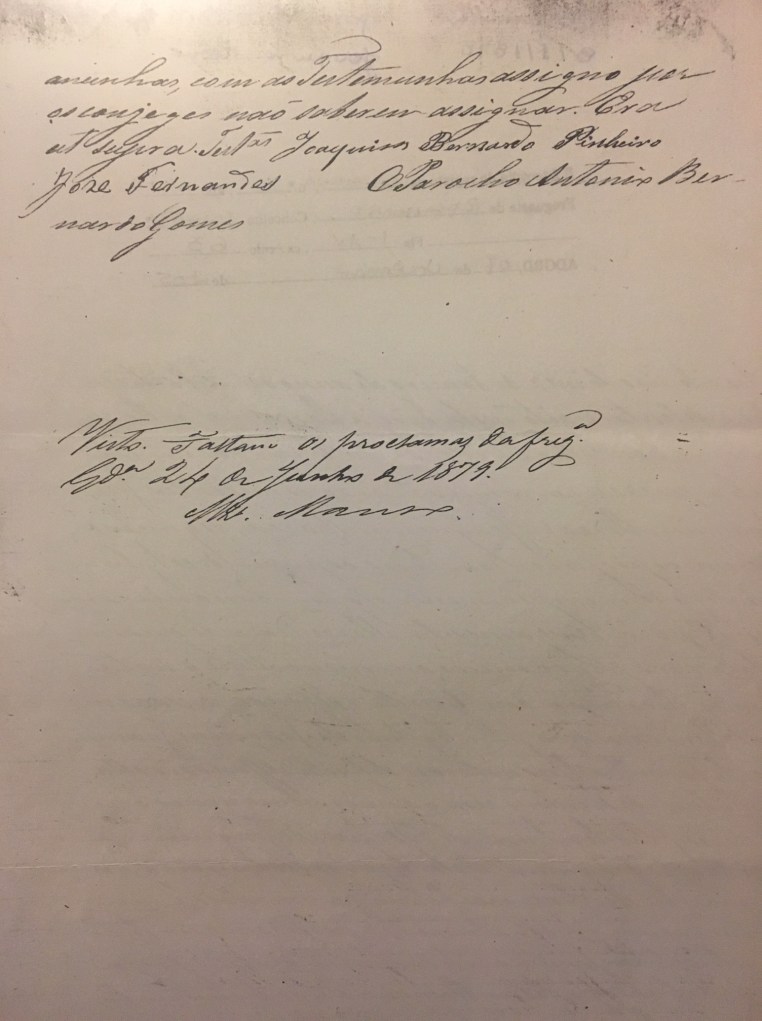 com as Testemunhas assigno por
os conjeges não saberem assignar. Era
ut supra. Test.as Joaquim Bernardo Pinheiro
Joze Fernandes O Parocho Antonio Ber-
nardo Gomes
Visto. os proclamas da freg.a
24 de Junho de 1879.